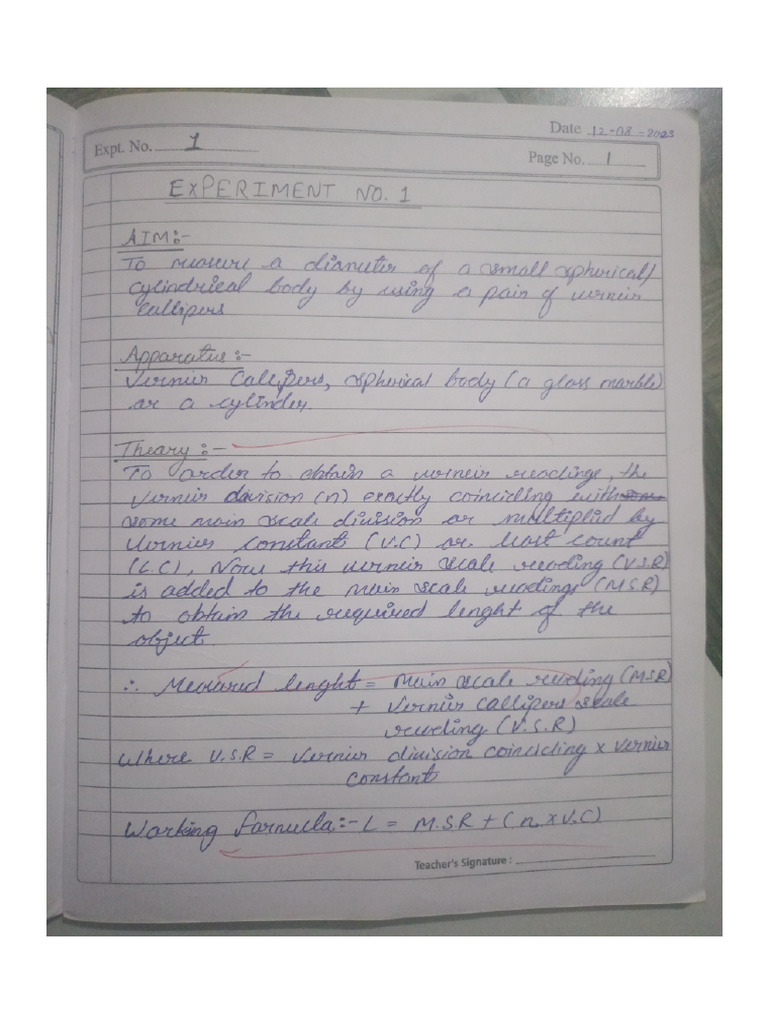 Date 12-08-2023
Expt. No. 1
Page No. 1
EXPERIMENT NO. 1
AIM:-
To mesure a diameter of a small spherical/
cylindrical body by using a pain of vernier
callipers
Apparatus:-
Vernier Callipers, spherical body (a glass marble)
or a cylinder.
Theory:-
To order to obtain a verneir readings, the
vernier division (n) exactly coinciding with some
some main scale division or multiplid by
Vernier constant (V.C) or least count
(L.C), Now this vernier scale reading (V.S.R)
is added to the main scale readings (M.S.R)
to obtain the required lenght of the
object.
∴ Measured lenght = main scale reading (M.S.R)
+ vernier callipers scale
reading (V.S.R)
Where V.S.R = vernier division coinciding x vernier
constant
Working formula:- L = M.S.R + (n x V.C)
Teacher's Signature :